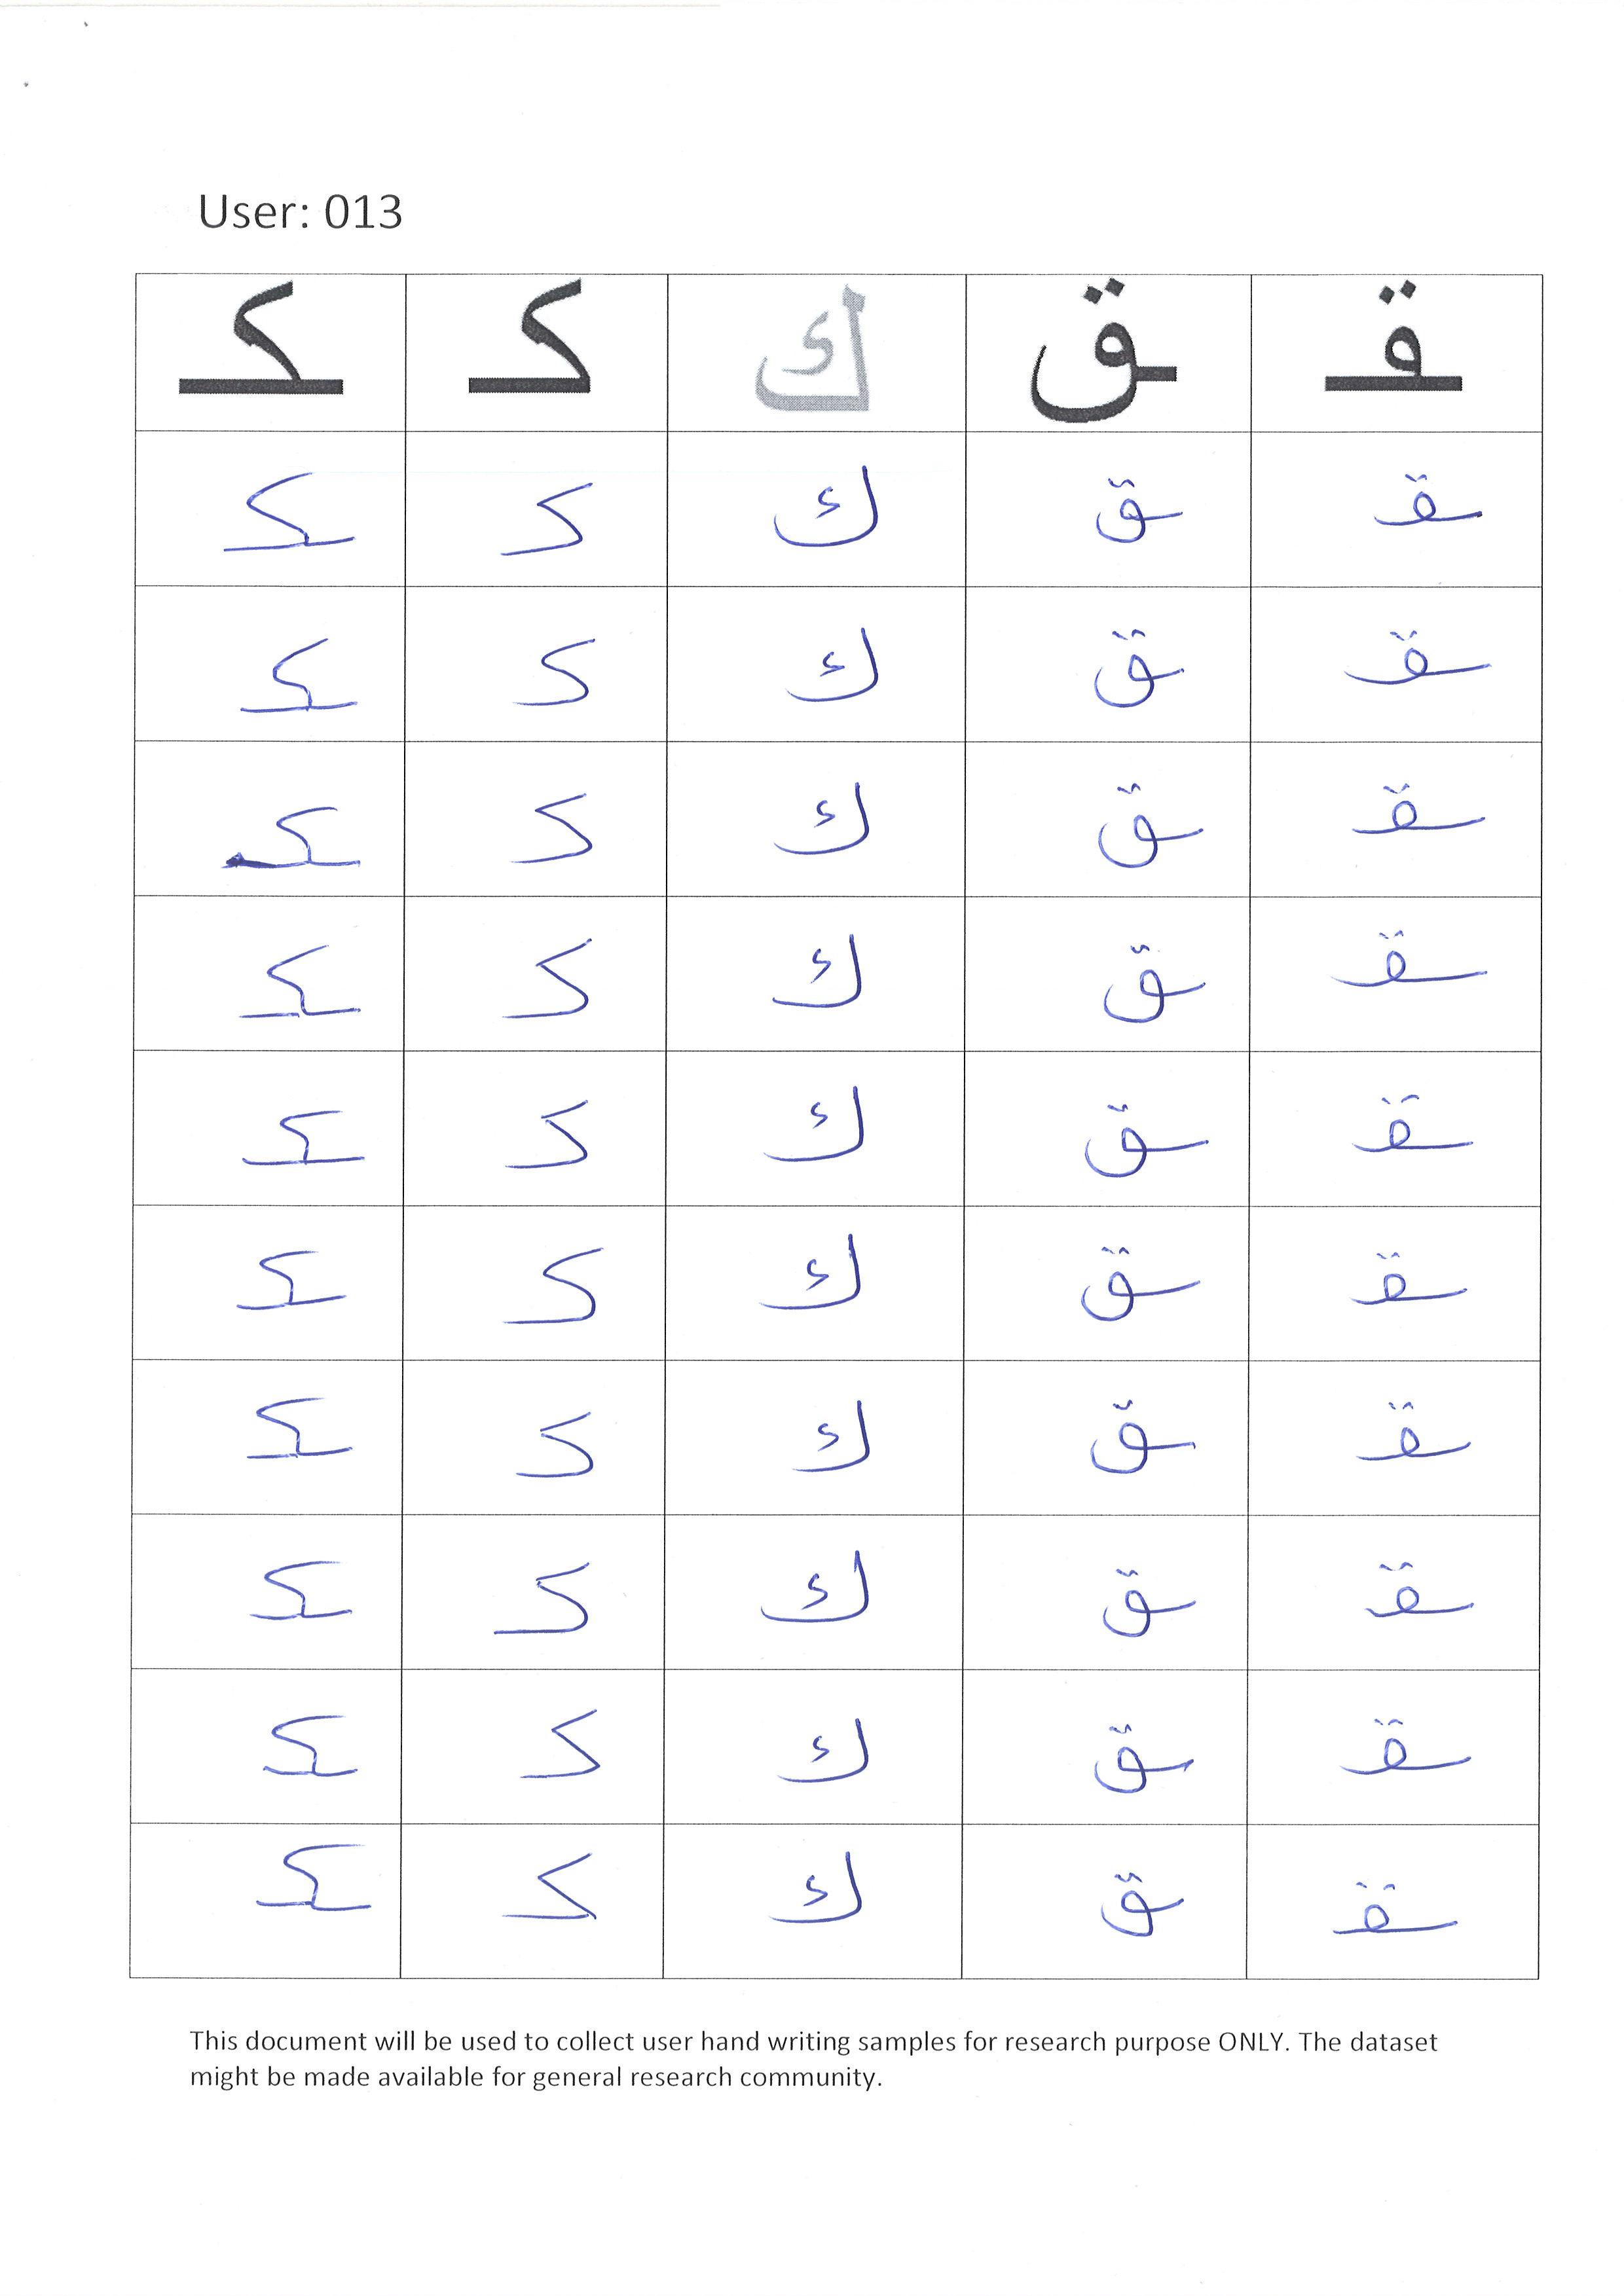 User: 013
ـقـ ـق ك كـ ـكـ
ـقـ ـق ك كـ ـكـ
ـقـ ـق ك كـ ـكـ
ـقـ ـق ك كـ ـكـ
ـقـ ـق ك كـ ـكـ
ـقـ ـق ك كـ ـكـ
ـقـ ـق ك كـ ـكـ
ـقـ ـق ك كـ ـكـ
ـقـ ـق ك كـ ـكـ
ـقـ ـق ك كـ ـكـ
ـقـ ـق ك كـ ـكـ
This document will be used to collect user hand writing samples for research purpose ONLY. The dataset
might be made available for general research community.